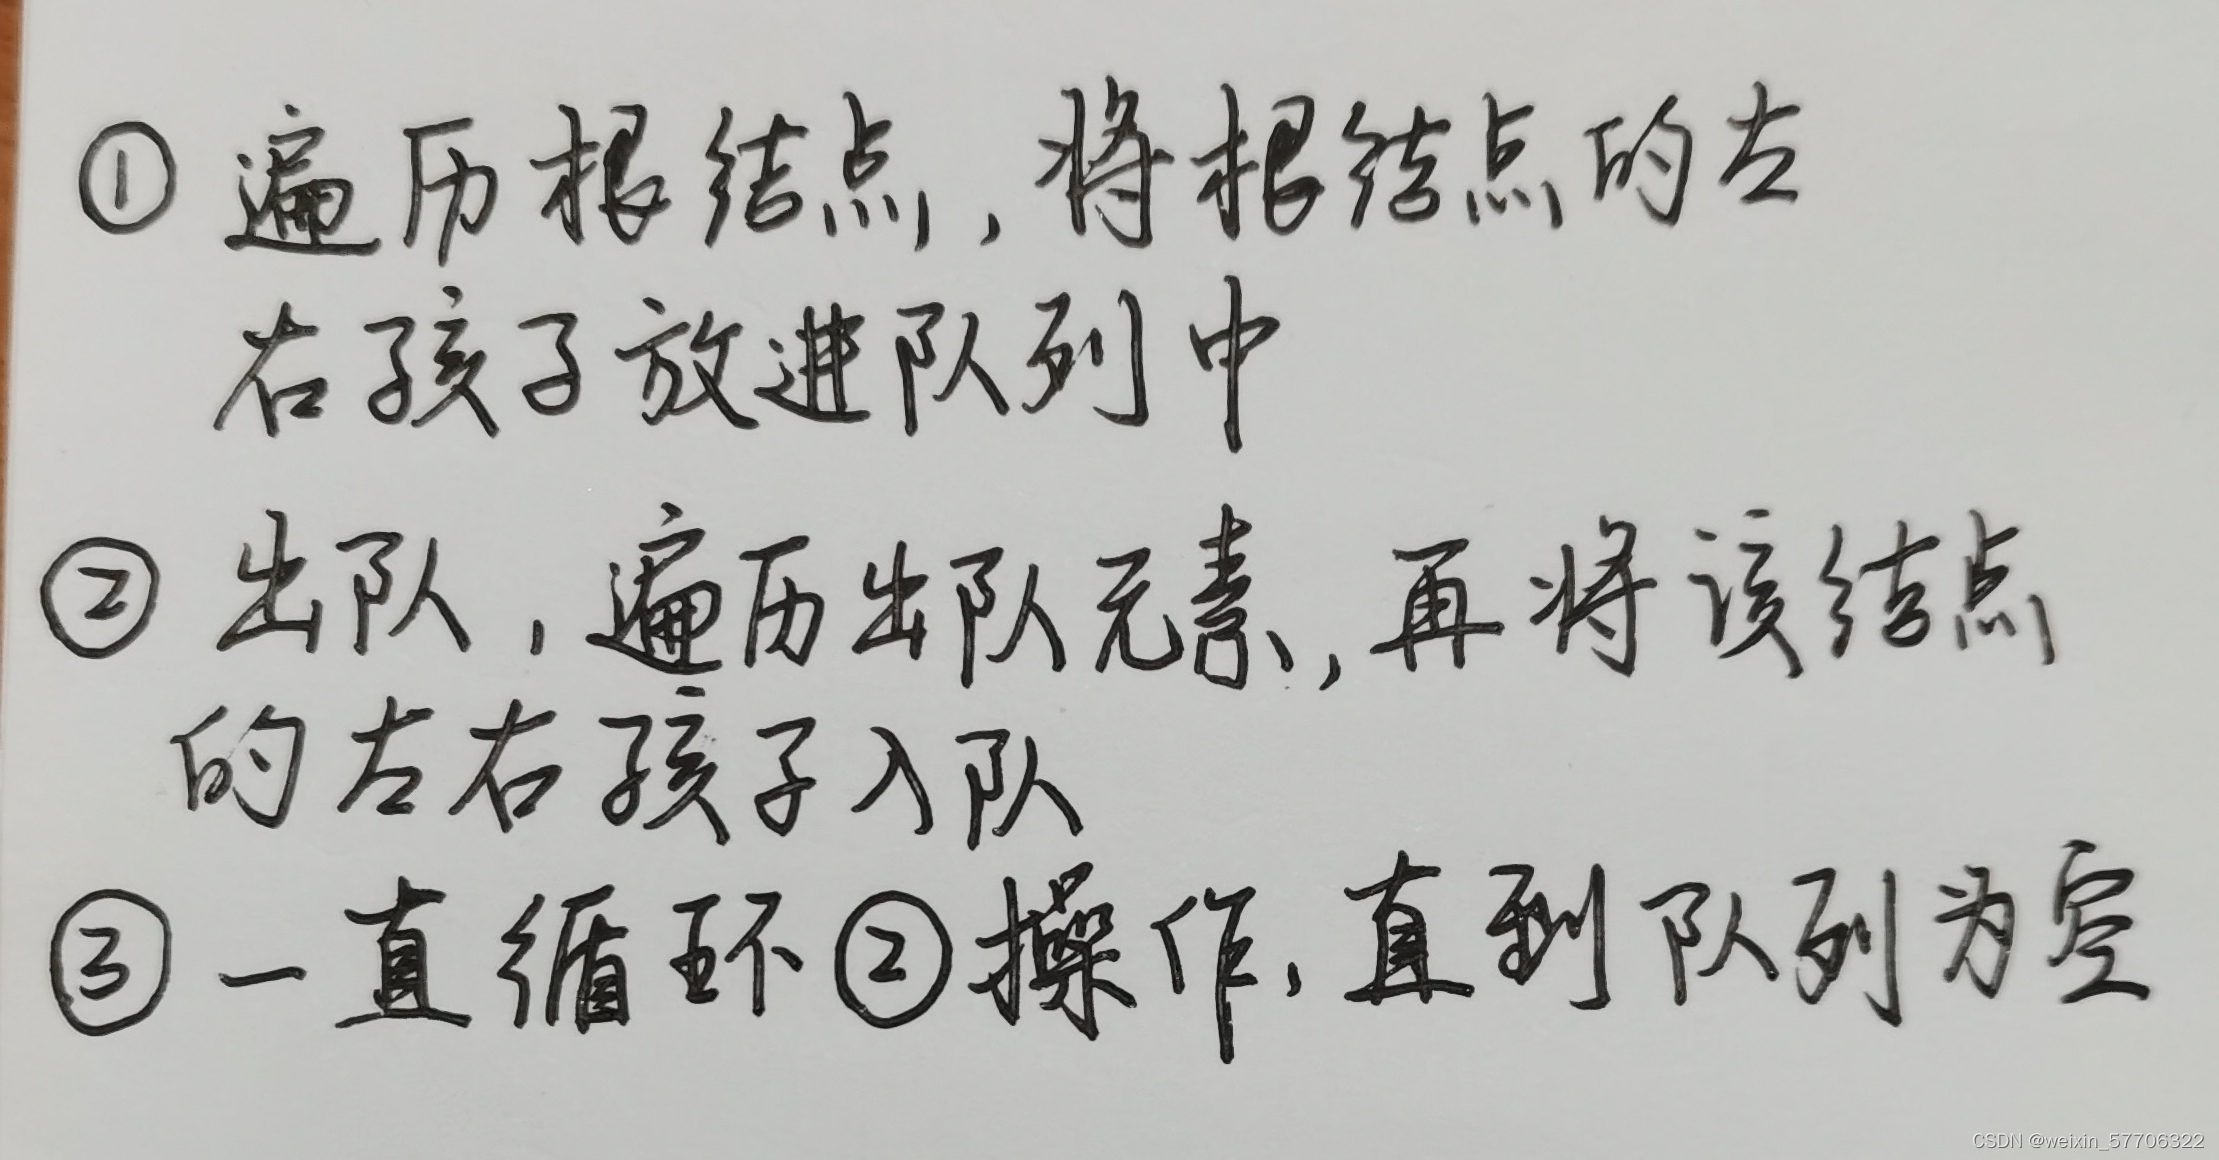 ① 遍历根结点，将根结点的左
右孩子放进队列中
② 出队，遍历出队元素，再将该结点
的左右孩子入队
③ 一直循环②操作，直到队列为空
CSDN @weixin_57706322